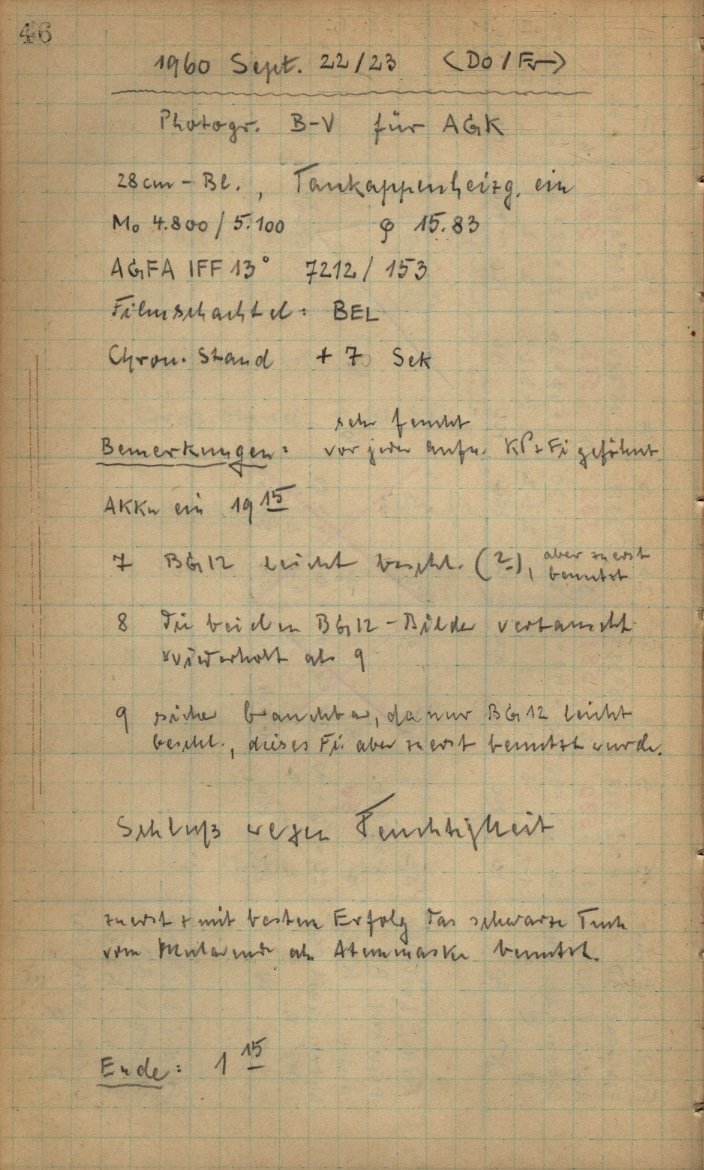 46
1960 Sept. 22/23 (Do/Fr)
Photogr. B-V für AGK
28cm - Bl., Taukappenheizg. ein
Mo 4.800/5.100 φ 15.83
AGFA IFF 13° 7212/153
Filmschachtel: BEL
Chron. Stand + 7 Sek
sehr feucht
Bemerkungen: vor jeder Aufn. KP + Fi geföhnt
AKKu ein 19 15
7 BG12 leicht beschl. (?), aber zuerst
benutzt
8 die beiden BG12-Bilder vertauscht
wiederholt als 9
9 sicher brauchbar, da nur BG12 leicht
beschl., dieses Fi aber zuerst benutzt wurde.
Schluß wegen Feuchtigkeit
zuerst + mit bestem Erfolg das schwarze Tuch
vom als Atemmaske benutzt.
Ende: 1 15